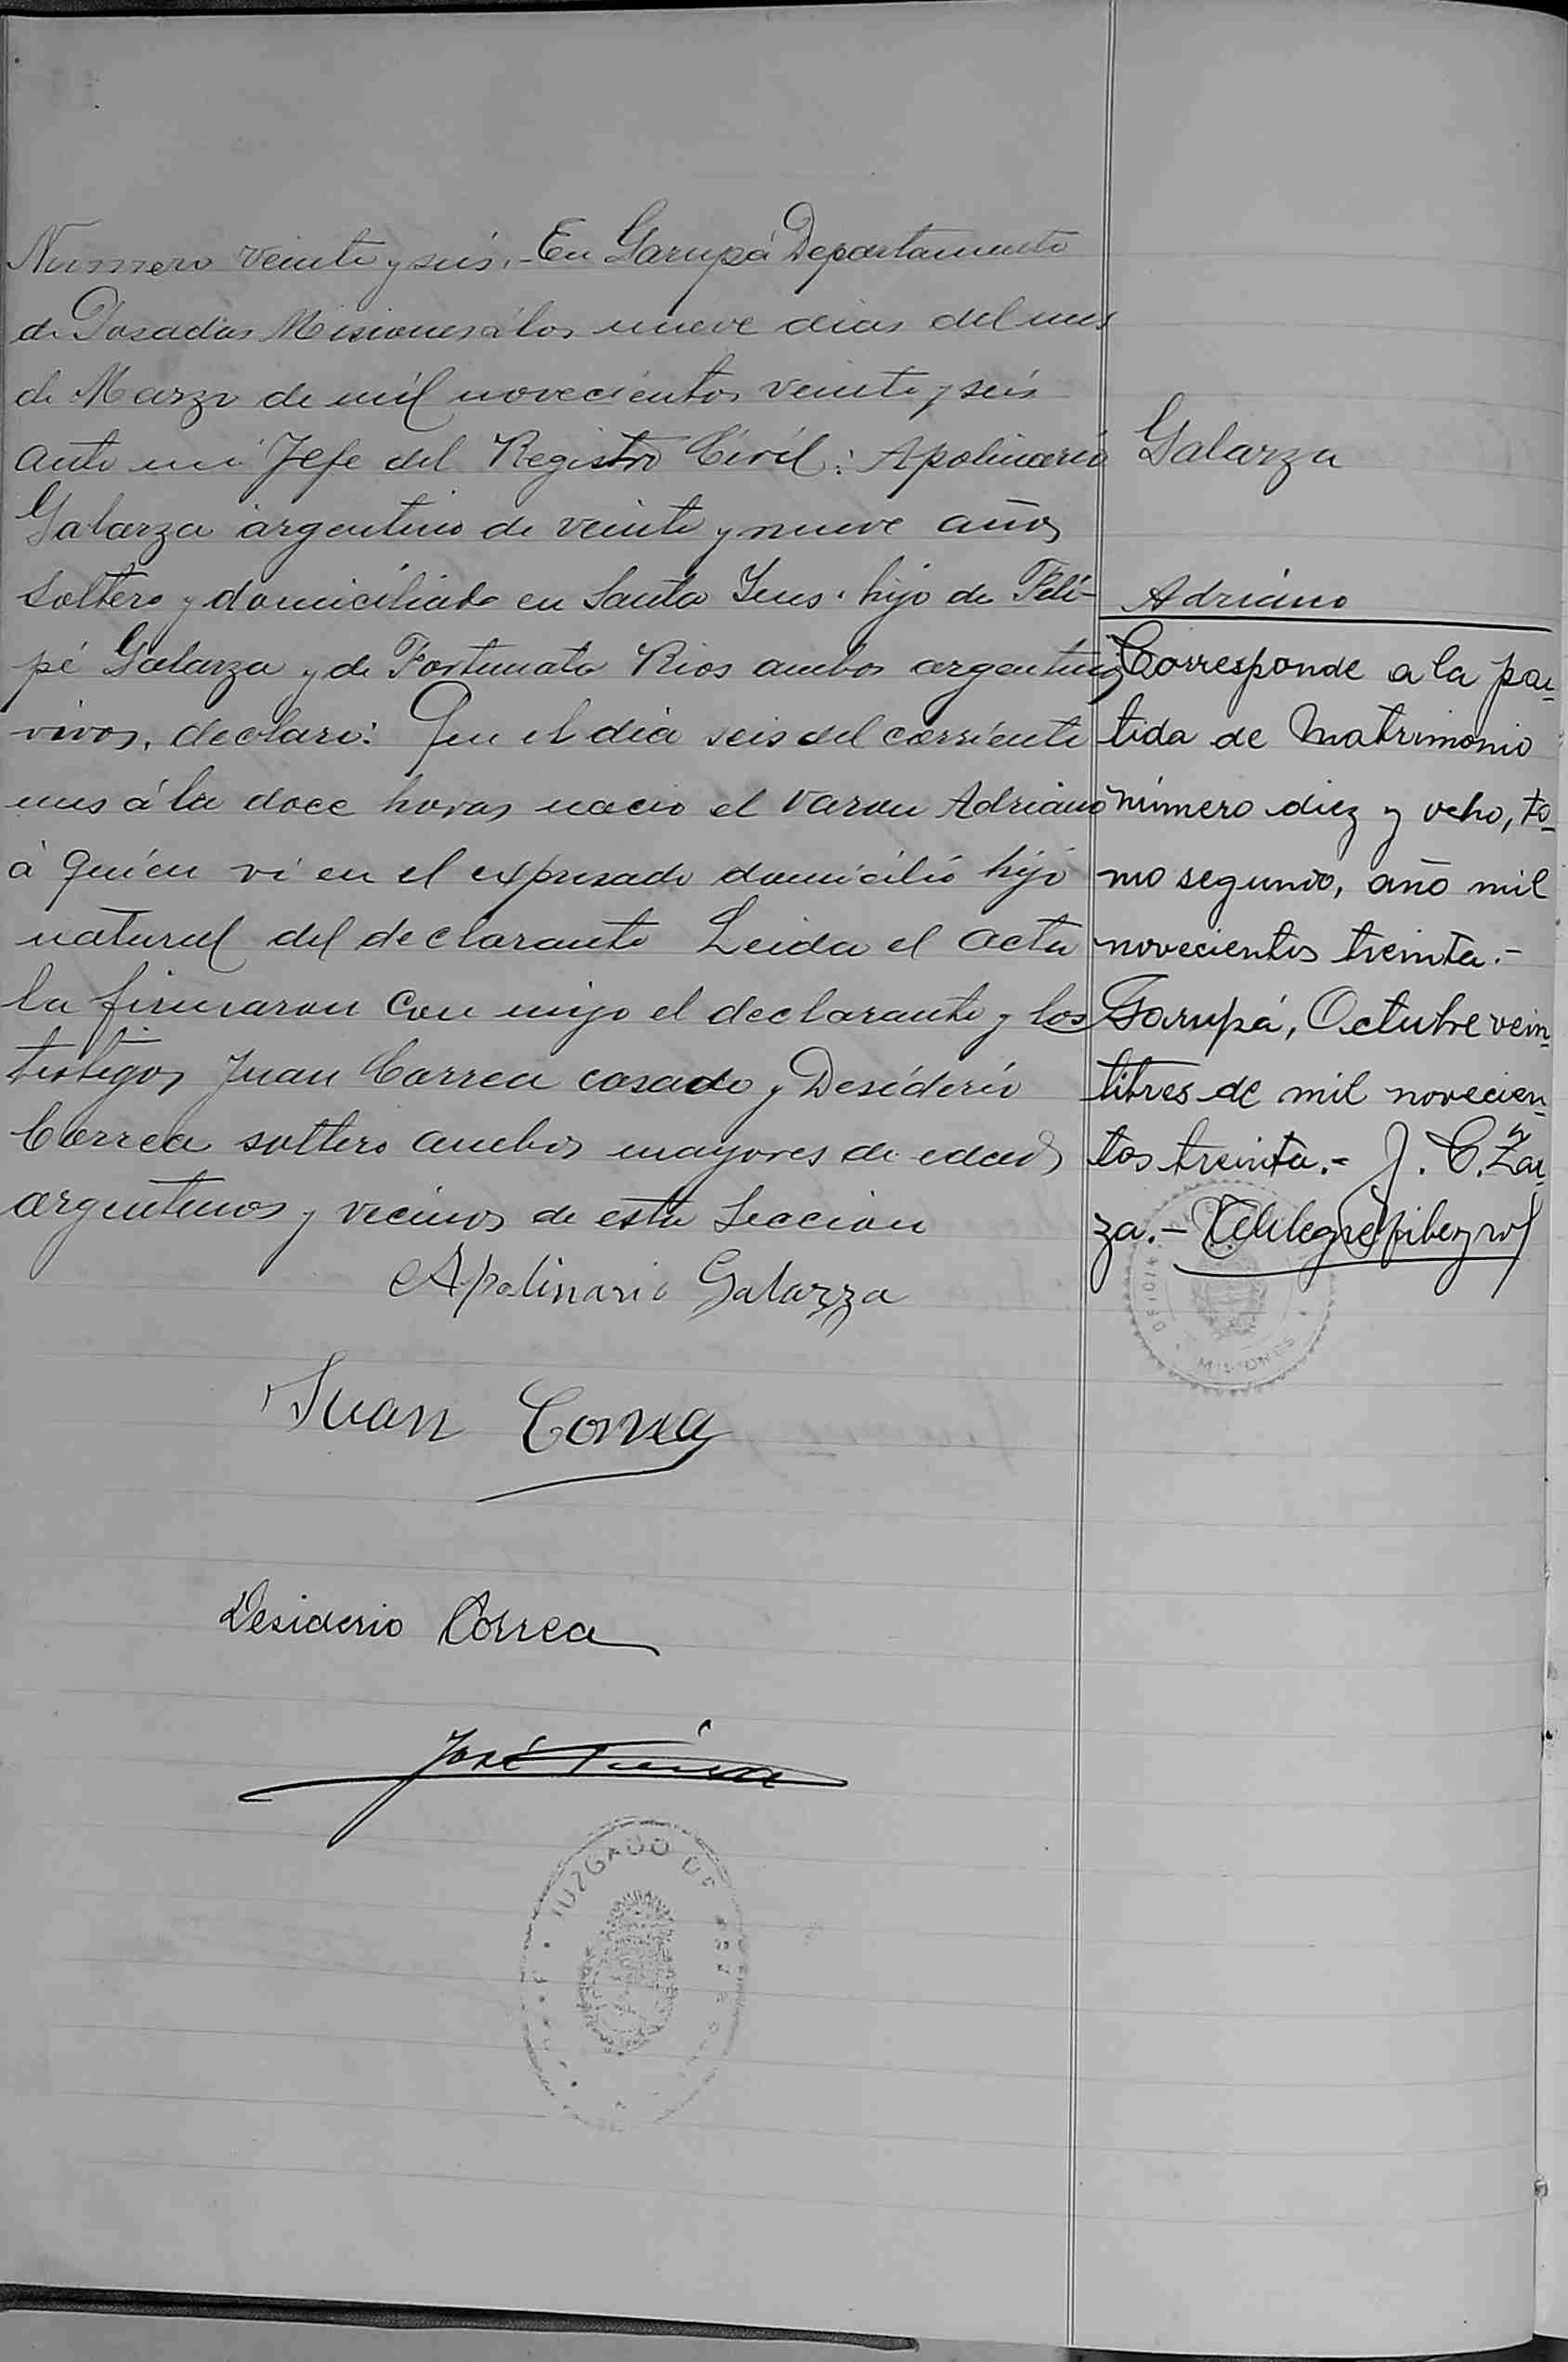 Numero veinte y seis.- En Garupá Departamento
de Posadas Misiones á los nueve dias del mes
de Marzo de mil novecientos veinte y seis
ante mi Jefe del Registro Civil: Apolinario
Galarza argentino de veinte y nueve años
soltero y domiciliado en Santa Ines. hijo de Feli-
pé Galarza y de Fortunata Rios ambos argentinos
vivos, declaro: Que el dia seis del corriente
mes á la doce horas nacio el varon Adriano
à quien vi en el expresado domicilio hijo
natural del declarante Leida el acta
la firmaron con migo el declarante y los
testigos Juan Correa casado y Desiderio
Correa soltero ambos mayores de edad
argentinos y vecinos de esta Seccion
Apolinario Galarza
Juan Correa
Desiderio Correa
José
JUZGADO DE
Galarza
Adriano
Corresponde a la par-
tida de Matrimonio
número diez y ocho, to-
mo segundo, año mil
novecientos treinta.-
Garupá, Octubre vein-
titres de mil novecien-
tos treinta.- J. C. Zar-
za.-
MISIONES